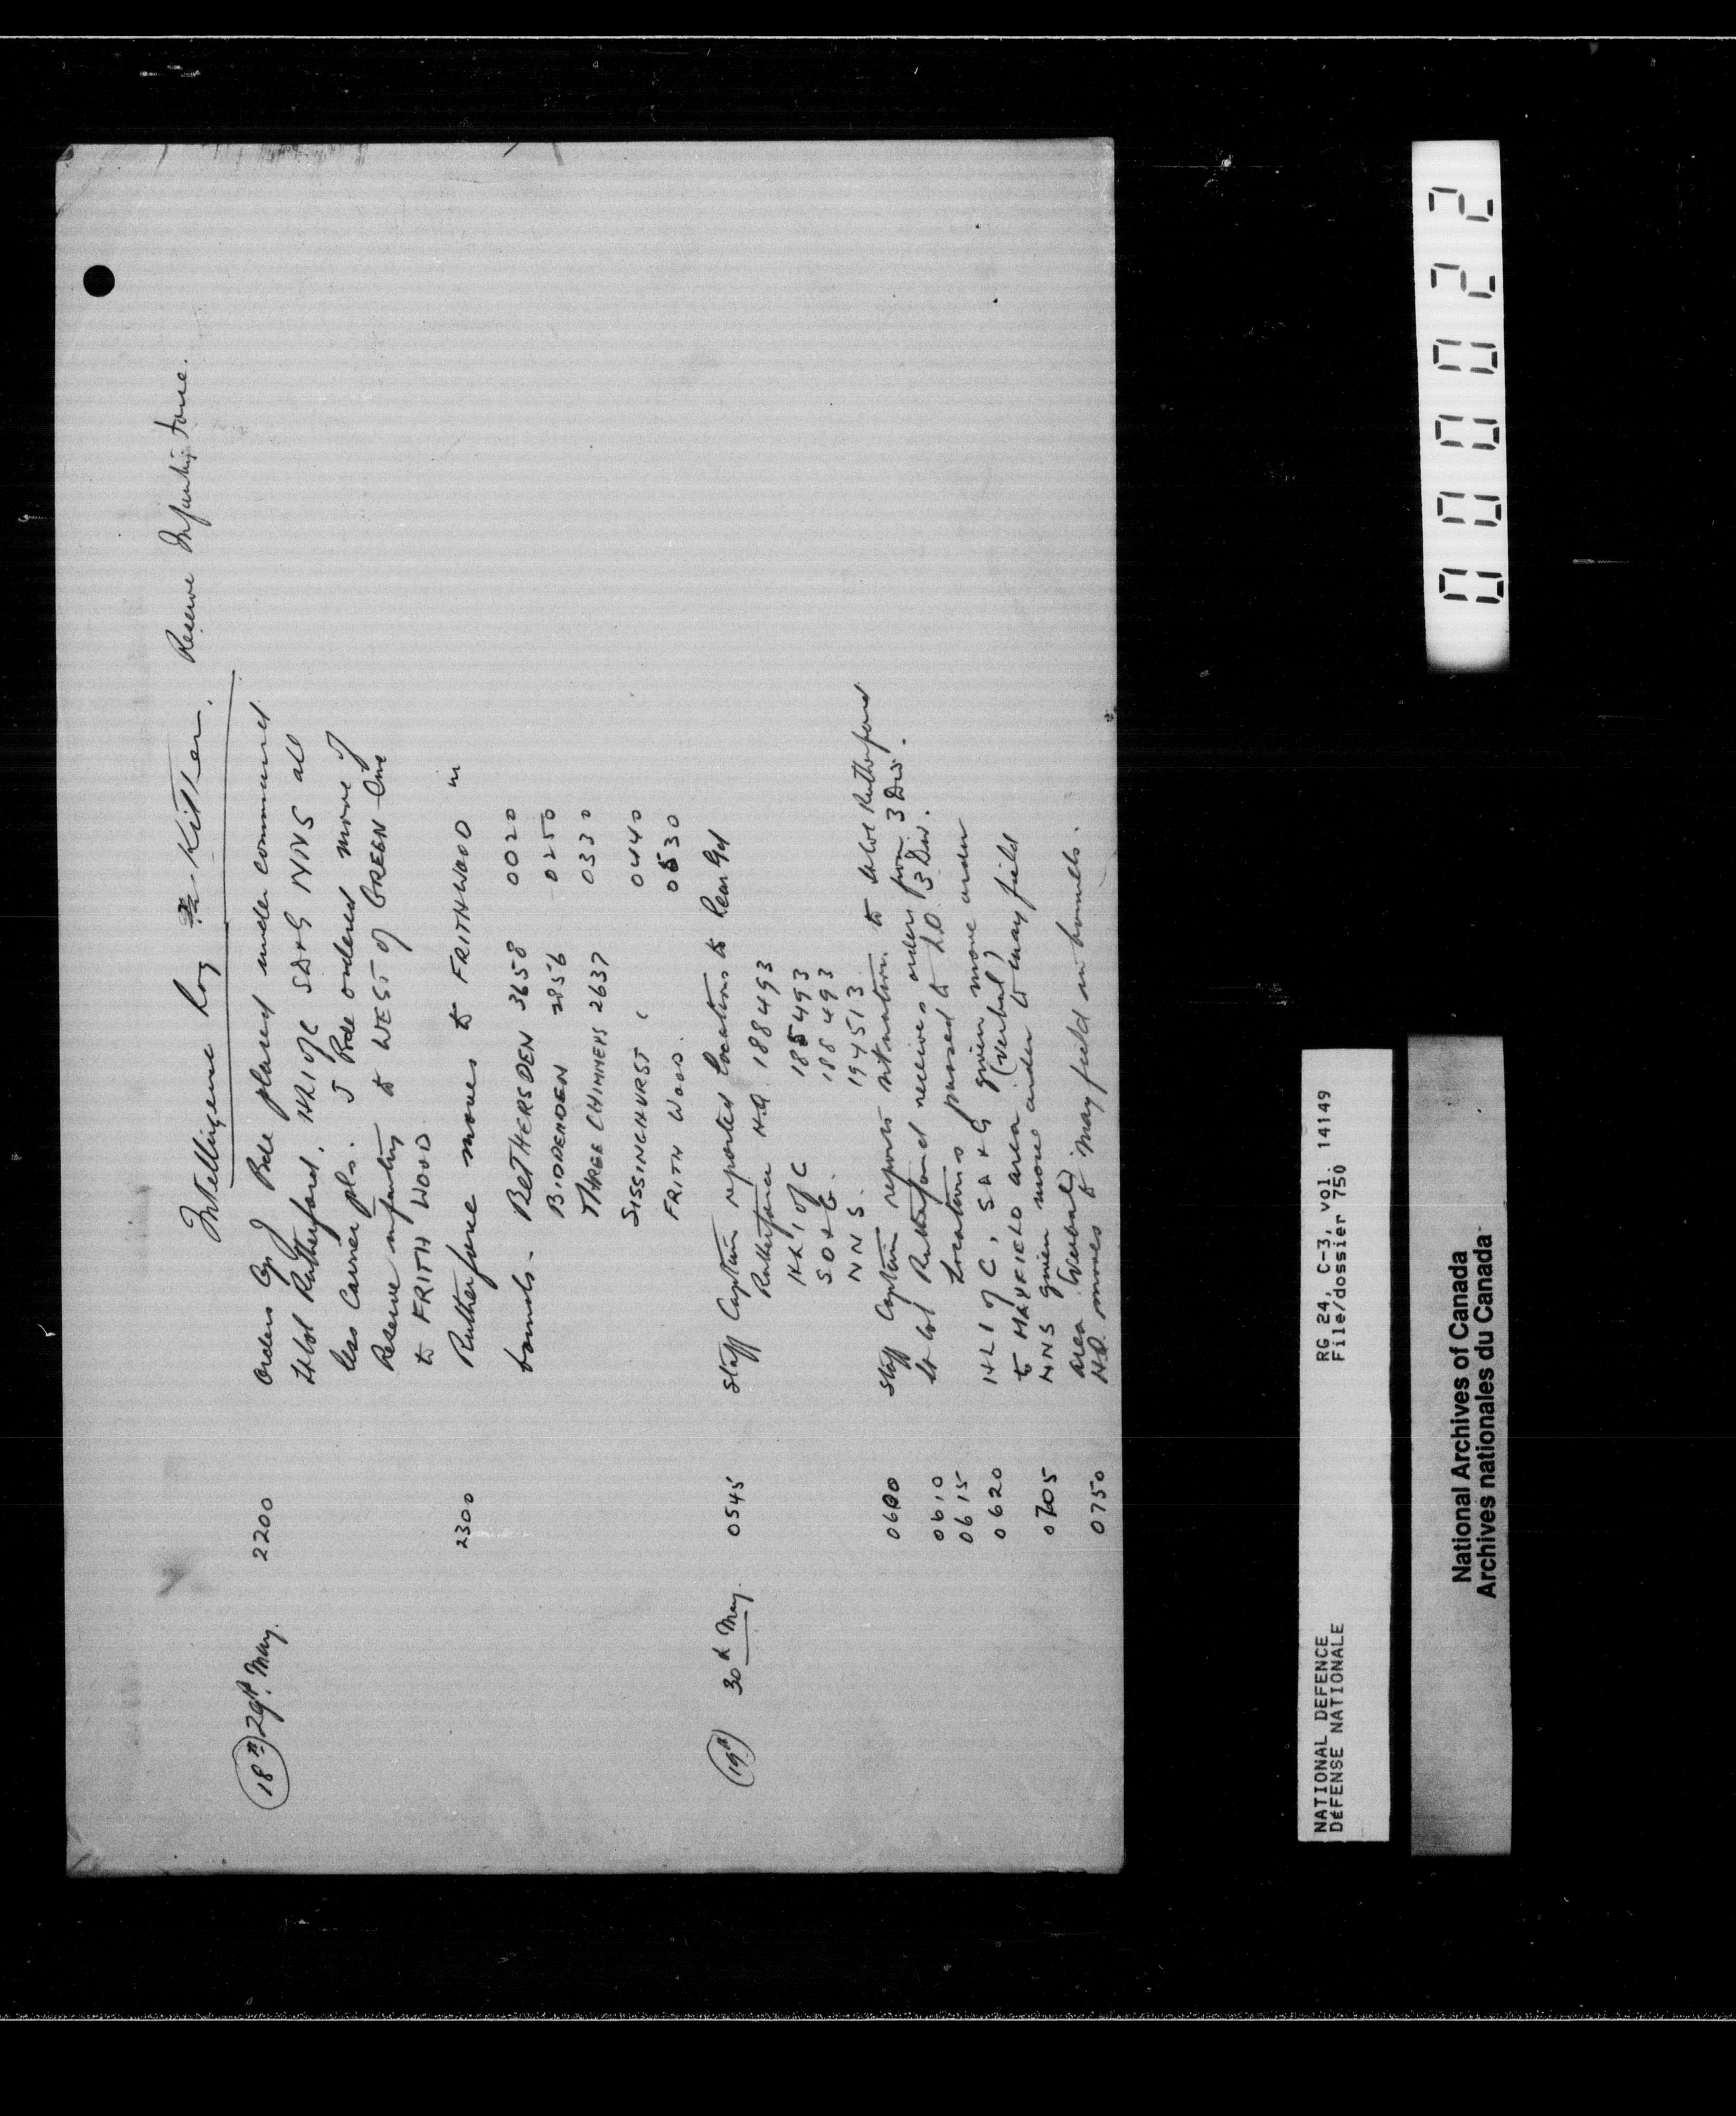 Intelligence Log Ex Kitten. Reserve Infantry Force.
18th 29th May. 2200 Orders Gp J Bde placed under command
Lt Col Rutherford. HLI of C SD&G NNS all
less Carrier pls. J Bde ordered move of
Reserve infantry to WEST of GREEN Line
to FRITH WOOD
2300 Rutherforce moves to FRITHWOOD in
bounds - BETHERSDEN 3658 0020
BIDDENDEN 2856 0250
THREE CHIMNEYS 2637 0330
SISSINGHURST 0440
FRITH WOOD. 0530
19th 30th May. 0545 Staff Captain reported locations to Rear
Rutherforce H.Q. 188493
HLI of C 185493
SD&G. 188493
NNS. 194513
0600 Staff Captain reports situation to Lt Col Rutherford
0610 Lt Col Rutherford receives orders from 3 Div.
0615 Locations passed to L.O. 3 Div.
0620 HLI of C, SD&G given move order
to MAYFIELD area (verbal)
0705 NNS given move order to Mayfield
area (verbal)
0750 HQ. moves to Mayfield in bounds.
NATIONAL DEFENCE RG 24, C-3, vol. 14149
DÉFENSE NATIONALE File/dossier 750
National Archives of Canada
Archives nationales du Canada
000022